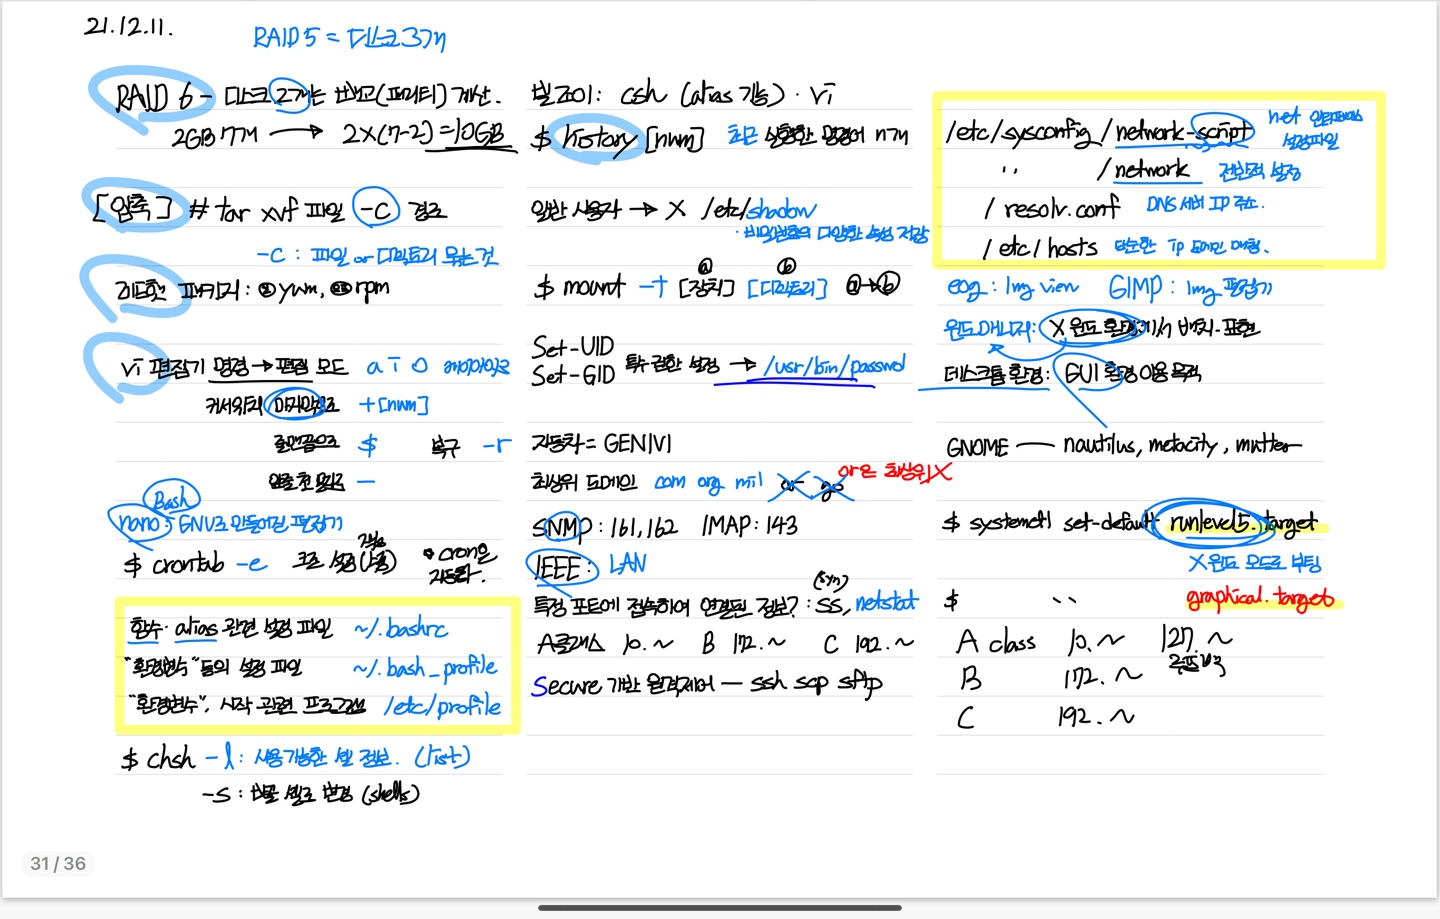 21.12.11.
RAID 5 = 디스크 3개
RAID 6 - 디스크 2개는 백업(패리티) 계산.
2GB 7개 → 2×(7-2)=10GB
[압축] # tar xvf 파일 -C 경로
-C : 파일 or 디렉토리 묶는 것
레드햇 패키지 : yum, rpm
vi 편집기 명령→편집 모드 a i o
커서위치 마지막으로 +[num]
줄맨끝으로 $ 복구 -r
-
Bash
nano : GNU로 만들어진 편집기
$ crontab -e 크론 설정
cron은
함수·alias 관련 설정 파일 ~/.bashrc
"환경변수" 등의 설정 파일 ~/.bash_profile
"환경변수", 시작 관련 프로그램 /etc/profile
$ chsh -l : 사용가능한 셸 정보. (list)
-s : 바꿀 셸로 변경 (shells)
빌조이 : csh (alias 기능) · vi
$ history [num] 최근 실행한 명령어 n개
일반 사용자 → X /etc/shadow
· 비밀번호의 다양한 속성 저장
ⓐ ⓑ
$ mount -t [장치] [디렉토리] ⓐ→ⓑ
Set-UID
Set-GID 특수 권한 설정 → /usr/bin/passwd
자동차 = GENIVI
최상위 도메인 com org mil or go or은 최상위X
SNMP : 161,162 IMAP : 143
IEEE : LAN
(syn)
특정 포트에 접속하여 연결된 정보? : ss, netstat
A클래스 10.~ B 172.~ C 192.~
Secure 기반 원격제어 — ssh scp sftp
/etc/sysconfig/network-script net 인터페이스 설정파일
〃 /network 전반적 설정
/resolv.conf DNS 서버 IP 주소.
/etc/hosts 단순한 ip 도메인 매핑.
eog : Img view GIMP : Img 편집기
윈도매니저 : X 윈도 환경에서 배치·표현
데스크톱 환경 : GUI 환경 이용 목적
GNOME — nautilus, metacity, mutter
$ systemctl set-default runlevel5.target
X 윈도 모드로 부팅
$ 〃 graphical.target
A class 10.~ 127.~
루프백
B 172.~
C 192.~
31 / 36